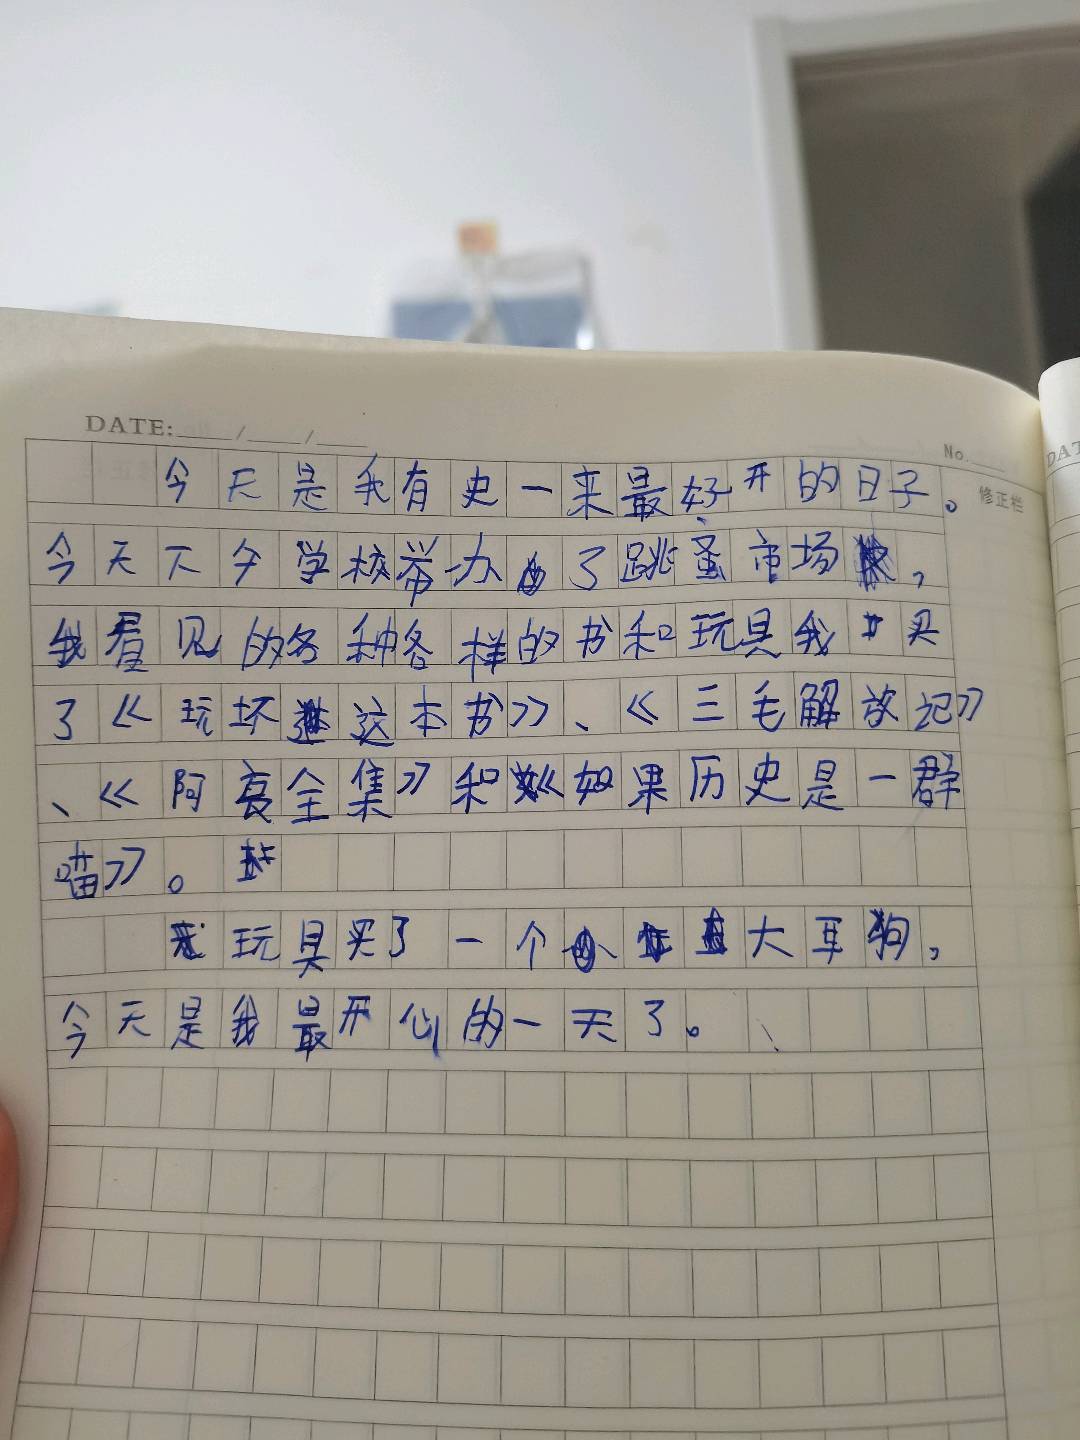 DATE: / /
No.
DAT
修正栏
今天是我有史一来最好开的日子。
今天下午学校举办了跳蚤市场,
我看见的各种各样的书和玩具我买
了《玩坏这本书》、《三毛解放记》
、《阿衰全集》和《如果历史是一群
喵》。
玩具买了一个大耳狗,
今天是我最开心的一天了。